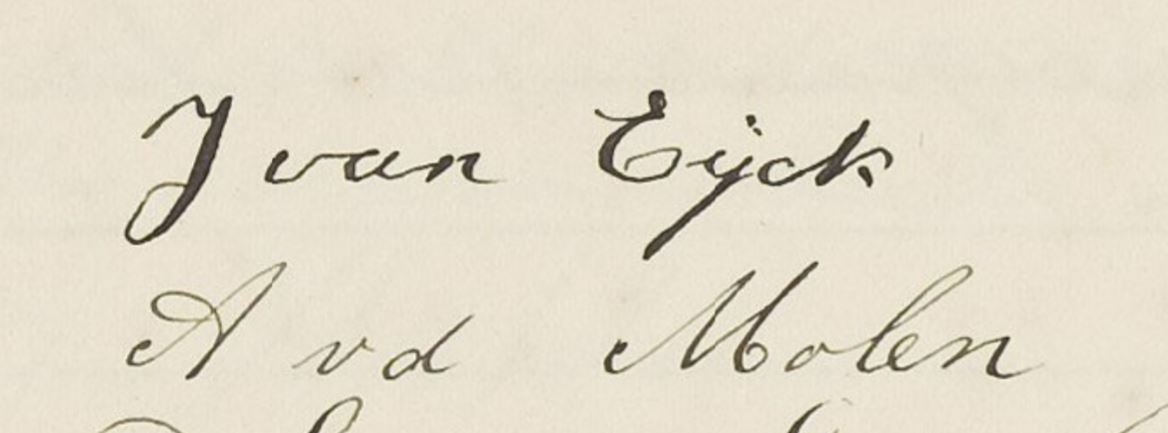 J van Eijck
A vd Molen